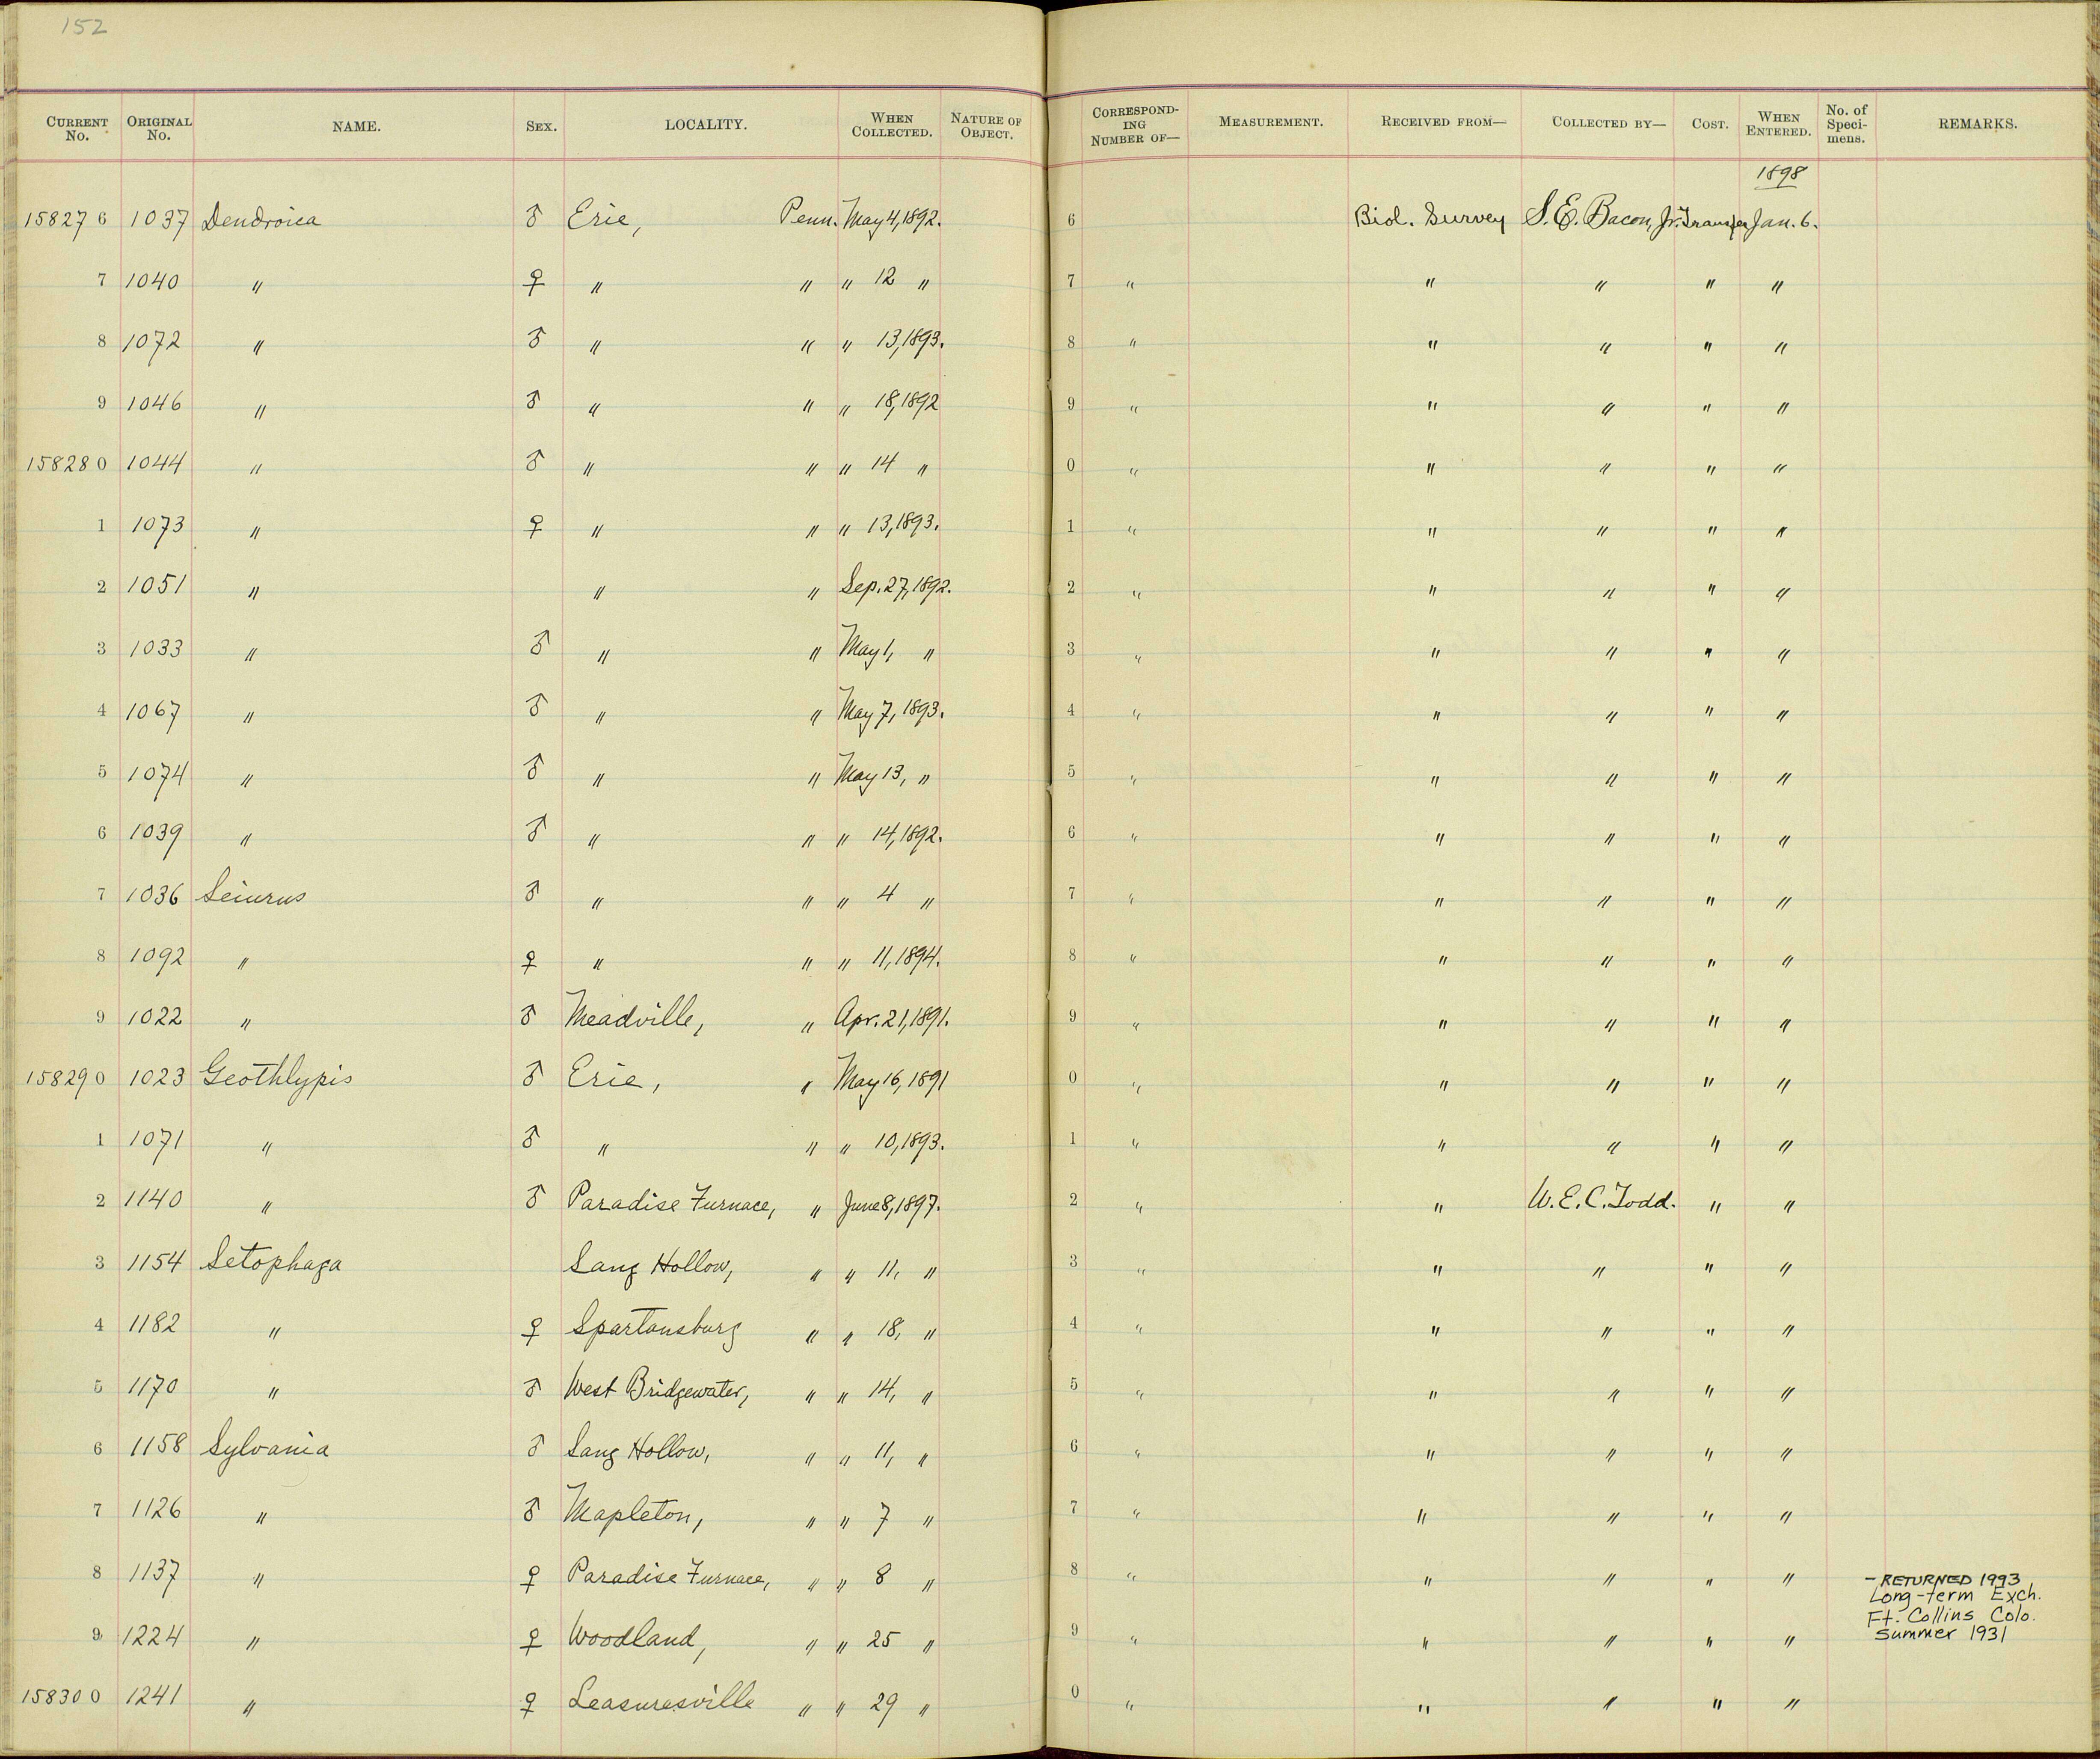 152
CURRENT No. ORIGINAL No. NAME. SEX. LOCALITY. WHEN COLLECTED. NATURE OF OBJECT. CORRESPOND-ING NUMBER OF— MEASUREMENT. RECEIVED FROM— COLLECTED BY— COST. WHEN ENTERED. No. of Speci-mens. REMARKS.
1898
158276 1037 Dendroica ♂ Erie, Penn. May 4, 1892. 6 Biol. Survey S. E. Bacon, Jr. Transfer Jan. 6.
7 1040 " ♀ " " " 12 " 7 " " " " "
8 1072 " ♂ " " " 13, 1893. 8 " " " " "
9 1046 " ♂ " " " 18, 1892 9 " " " " "
158280 1044 " ♂ " " " 14 " 0 " " " " "
1 1073 " ♀ " " " 13, 1893. 1 " " " " "
2 1051 " " " Sep. 27, 1892. 2 " " " " "
3 1033 " ♂ " " May 1, " 3 " " " " "
4 1067 " ♂ " " May 7, 1893. 4 " " " " "
5 1074 " ♂ " " May 13, " 5 " " " " "
6 1039 " ♂ " " " 14, 1892. 6 " " " " "
7 1036 Seiurus ♂ " " " 4 " 7 " " " " "
8 1092 " ♀ " " " 11, 1894. 8 " " " " "
9 1022 " ♂ Meadville, " Apr. 21, 1891. 9 " " " " "
158290 1023 Geothlypis ♂ Erie, " May 16, 1891 0 " " " " "
1 1071 " ♂ " " " 10, 1893. 1 " " " " "
2 1140 " ♂ Paradise Furnace, " June 8, 1897. 2 " " W. E. C. Todd. " "
3 1154 Setophaga Sang Hollow, " " 11, " 3 " " " " "
4 1182 " ♀ Spartansburg " " 18, " 4 " " " " "
5 1170 " ♂ West Bridgewater, " " 14, " 5 " " " " "
6 1158 Sylvania ♂ Sang Hollow, " " 11, " 6 " " " " "
7 1126 " ♂ Mapleton, " " 7 " 7 " " " " "
8 1137 " ♀ Paradise Furnace, " " 8 " 8 " " " " " – RETURNED 1993
Long-term Exch.
Ft. Collins Colo.
Summer 1931
9 1224 " ♀ Woodland, " " 25 " 9 " " " " "
158300 1241 " ♀ Leasuresville " " 29 " 0 " " " " "